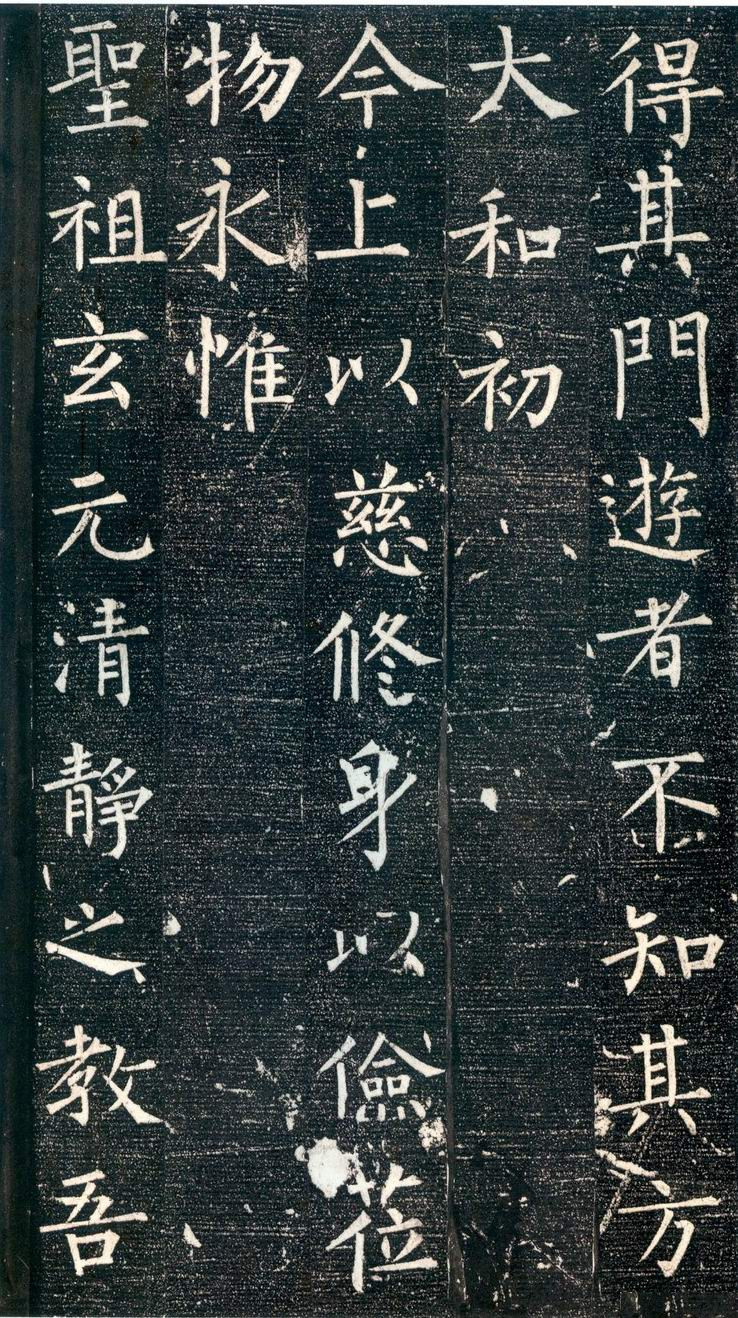 得其門遊者不知其方
大和初
今上以慈修身以儉莅
物永惟
聖祖玄元清静之教吾